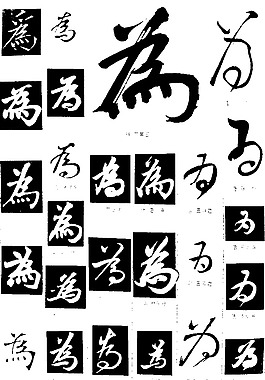 為為為為為
為
為為為
為為為
為為為
為為為為為為
為為為為為